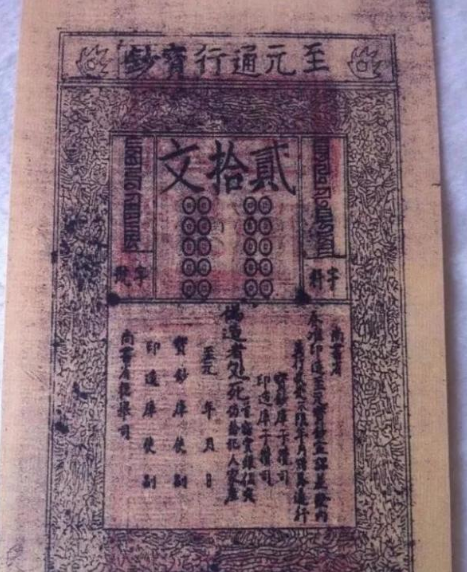 至元通行寶鈔
貳拾文
字料
字號
尚書省
奏准印造至元寶鈔宣課差役內
並行收受不限年月諸路通行
寶鈔庫子攢司
印造庫子攢司
偽造者處死
首告者賞銀伍定
仍給犯人家產
至元 年 月 日
寶鈔庫使副
印造庫使副
尚書省提舉司